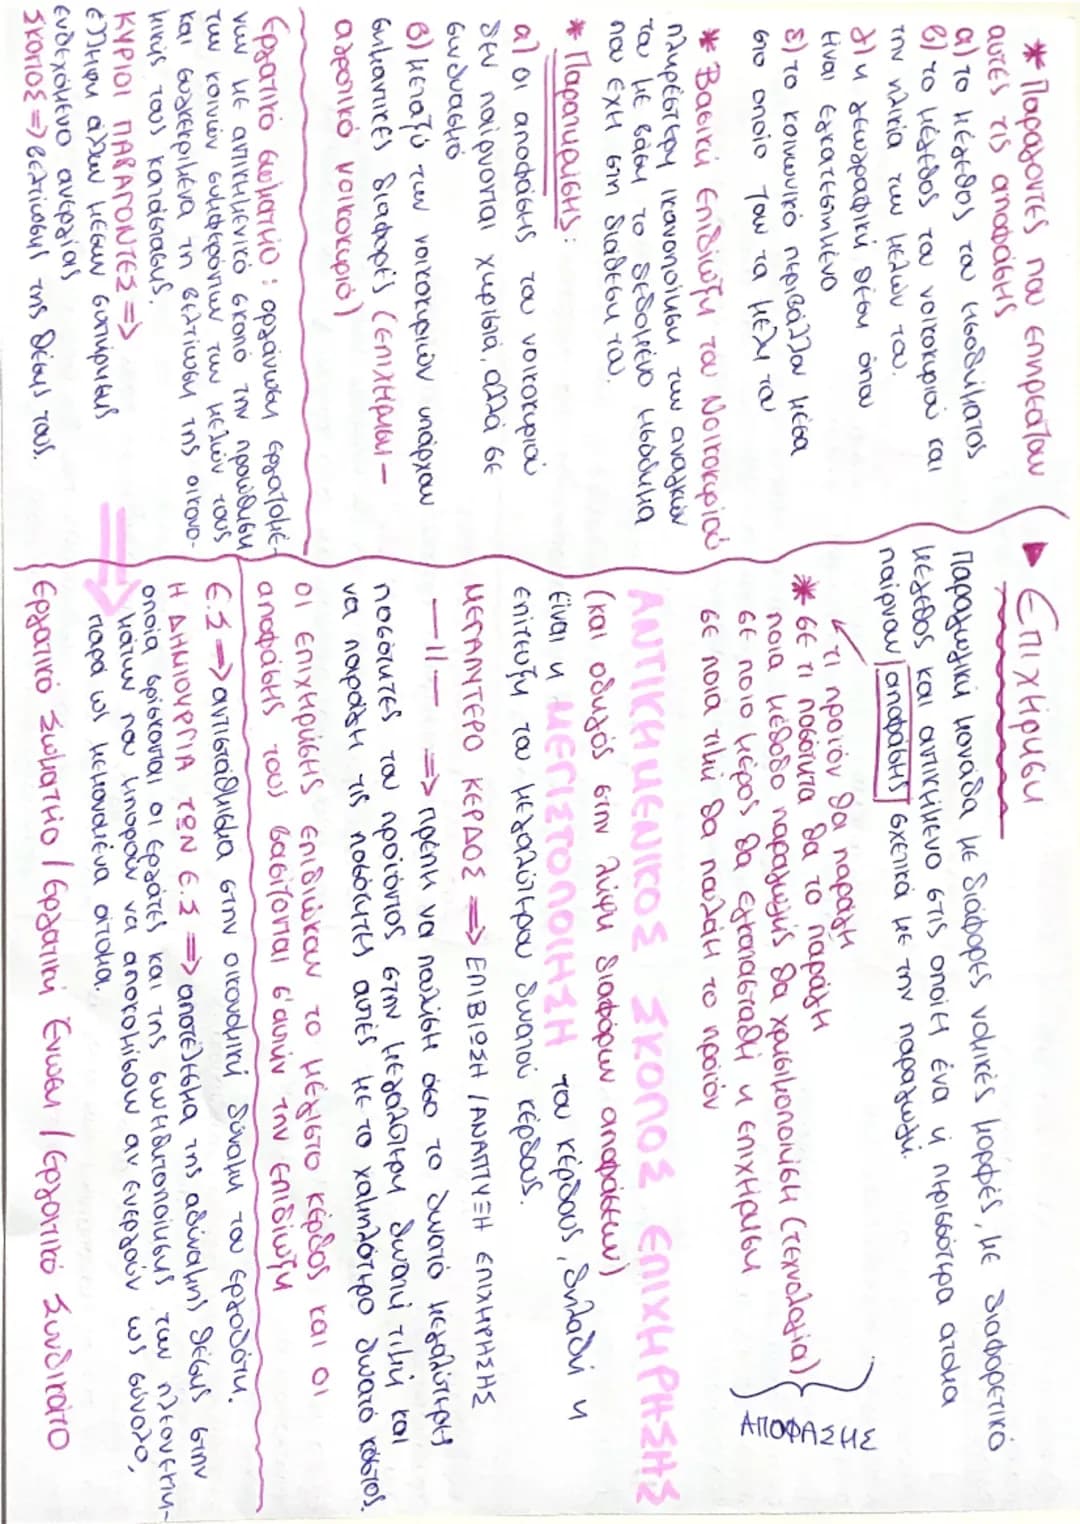 * Παράγοντες που επηρεάζουν
αυτές τις αποφάσης
α) το μέγεθος του ησοδήματος
β) το μέγεθος του νοικοκυριού και
την ηλικία των μελών του.
γ) η γεωγραφική θέση όπου
ήναι εγκατεστημένο
ε) το κοινωνικό περιβάλλον μέσα
στο οποίο ζουν τα μέλη του
* Βασική επιδίωξη του Νοικοκυριού
πληρέστερη ικανοποίηση των αναγκών
του με βάση το δεδομένο ησόδημα
που έχη στη διάθεση του.
* Παρατηρήσης:
α) οι αποφάσης του νοικοκυριού
δεν παίρνονται χωριστά, αλλά σε
συνδυασμό
β) μεταξύ των νοικοκυριών υπάρχουν
σημαντικές διαφορές (επιχήρηση -
αγροτικό νοικοκυριό)
Εργατικό σωματηο : οργάνωση εργαζομέ-
νων με αντικημενικό σκοπό την προώθηση
των κοινών συμφερόντων των μελών τους
και συγκεκριμένα τη βελτίωση της οικονο-
μικής τους κατάστασης.
ΚΥΡΙΟΙ ΠΑΡΑΓΟΝΤΕΣ =>
έλληψη άλλων μέσων συντήρησης
ενδεχόμενο ανεργίας
ΣΚΟΠΟΣ => βελτίωση της θέσης τους.
▶ Επιχήρηση
Παραγωγική μονάδα με διάφορες νομικές μορφές, με διαφορετικό
μέγεθος και αντικήμενο στις οποίη ένα ή περισσότερα άτομα
παίρνουν αποφάσης σχετικά με την παραγωγή.
τι προϊόν θα παράγη
* σε τι ποσότητα θα το παράγη
ποια μέθοδο παραγωγής θα χρησιμοποιήση (τεχνολογία)
σε ποιο μέρος θα εγκατασταθή η επιχήρηση
σε ποια τιμή θα πουλάη το προϊόν
ΑΠΟΦΑΣΗΣ
ΑΝΤΙΚΗΜΕΝΙΚΟΣ ΣΚΟΠΟΣ ΕΠΙΧΗΡΗΣΗΣ
(και οδηγός στην λήψη διαφόρων αποφάσεων)
είναι η ΜΕΓΙΣΤΟΠΟΙΗΣΗ του κέρδους, δηλαδή η
επίτευξη του μεγαλύτερου δυνατού κέρδους.
ΜΕΓΑΛΥΤΕΡΟ ΚΕΡΔΟΣ => ΕΠΙΒΙΩΣΗ / ΑΝΑΠΤΥΞΗ ΕΠΙΧΗΡΗΣΗΣ
—||— => πρέπη να πουλήση όσο το δυνατό μεγαλύτερης
ποσότητες του προϊόντος στην μεγαλύτερη δυνατή τιμή και
να παράγη τις ποσότητες αυτές με το χαμηλότερο δυνατό κόστος.
οι επιχηρήσης επιδιώκουν το μέγιστο κέρδος και οι
αποφάσης τους βασίζονται σ'αυτήν την επιδίωξη
Ε.Σ => αντιστάθμισμα στην οικονομική δύναμη του εργοδότη.
Η ΔΗΜΙΟΥΡΓΙΑ ΤΩΝ Ε.Σ => αποτέλεσμα της αδύναμης θέσης στην
οποία βρίσκονται οι εργάτες και της συνηδητοποίησης των πλεονεκτη-
μάτων που μπορούν να αποκομίσουν αν ενεργούν ως σύνολο,
παρά ως μεμονωμένα άτομα.
Εργατικό Σωματηο / Εργατική Ένωση / Εργατικό Συνδικάτο